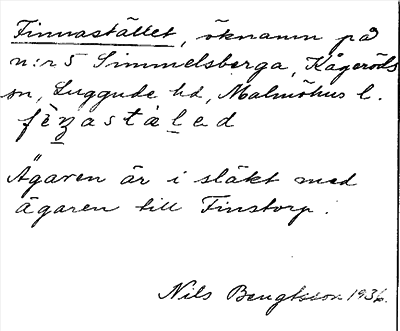 Finnastället, öknamn på
n:r 5 Simmelsberga, Kågeröds
sn, Luggude hd, Malmöhus l.
fènastäled
Ägaren är i släkt med
ägaren till Finstorp.
Nils Bengtsson 1936.